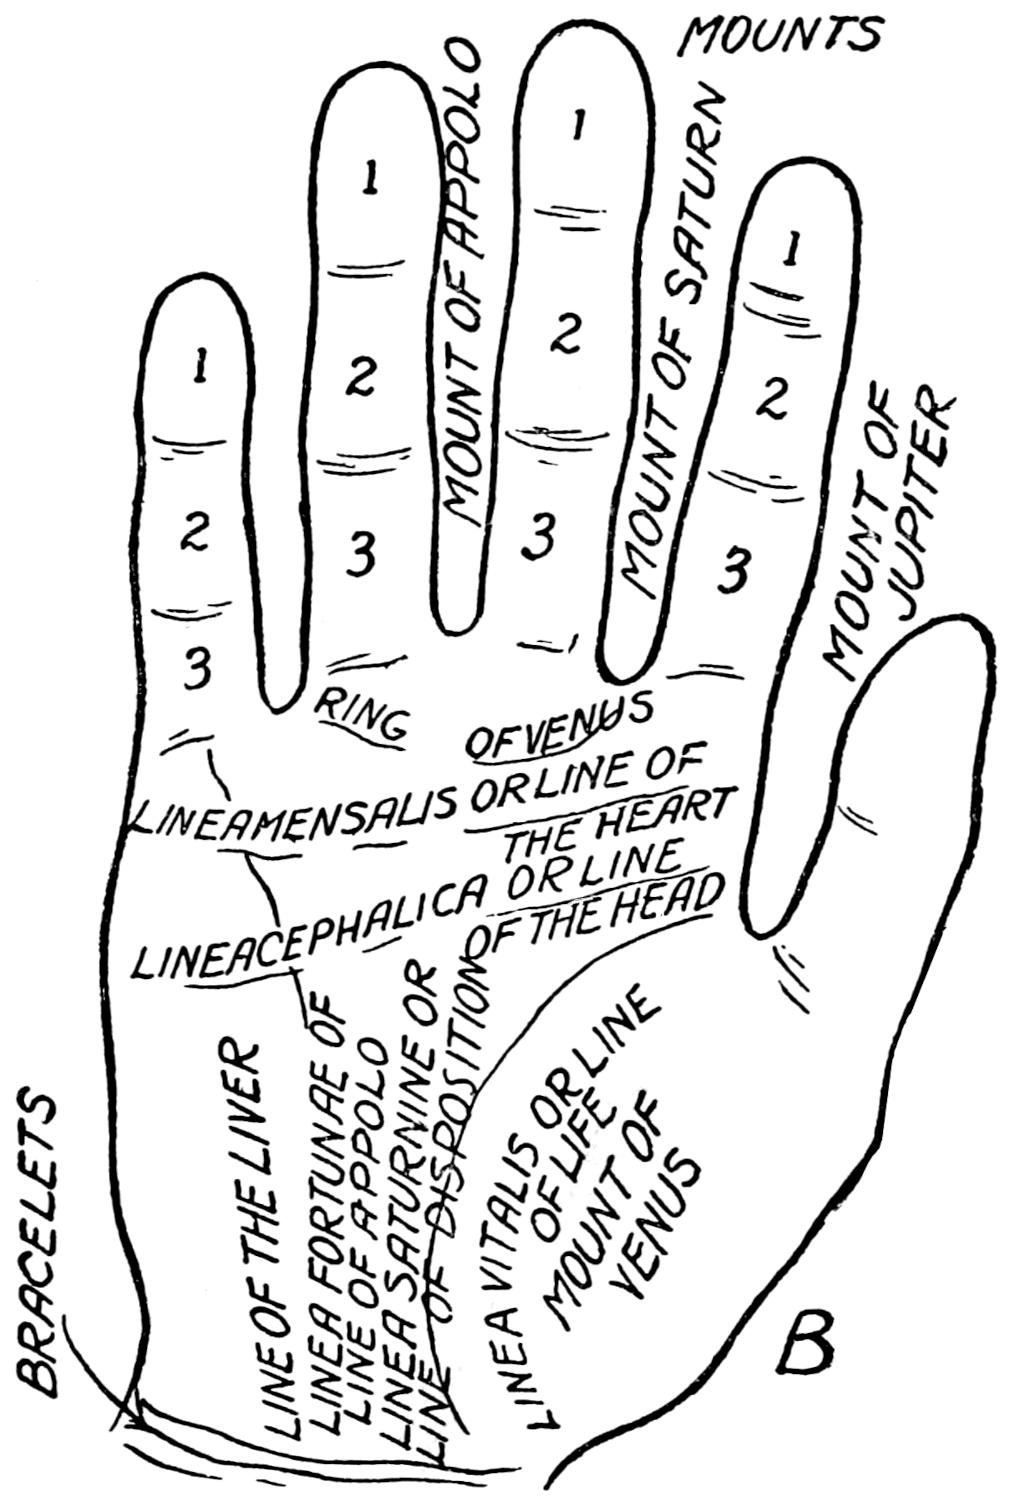 MOUNTS
MOUNT OF APPOLO
MOUNT OF SATURN
MOUNT OF
JUPITER
1
2
3
1
2
3
1
2
3
1
2
3
RING OF VENUS
LINEAMENSALIS OR LINE OF
THE HEART
LINEACEPHALICA OR LINE
OF THE HEAD
LINE OF THE LIVER
LINEA FORTUNAE OF
LINE OF APPOLO
LINEA SATURNINE OR
LINE OF DISPOSITION
LINEA VITALIS OR LINE
OF LIFE
MOUNT OF
VENUS
BRACELETS
B